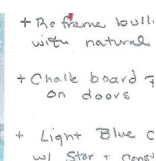 + Reframe bull
with natural
+ Chalk board
on doors
+ Light Blue
w/ Star +